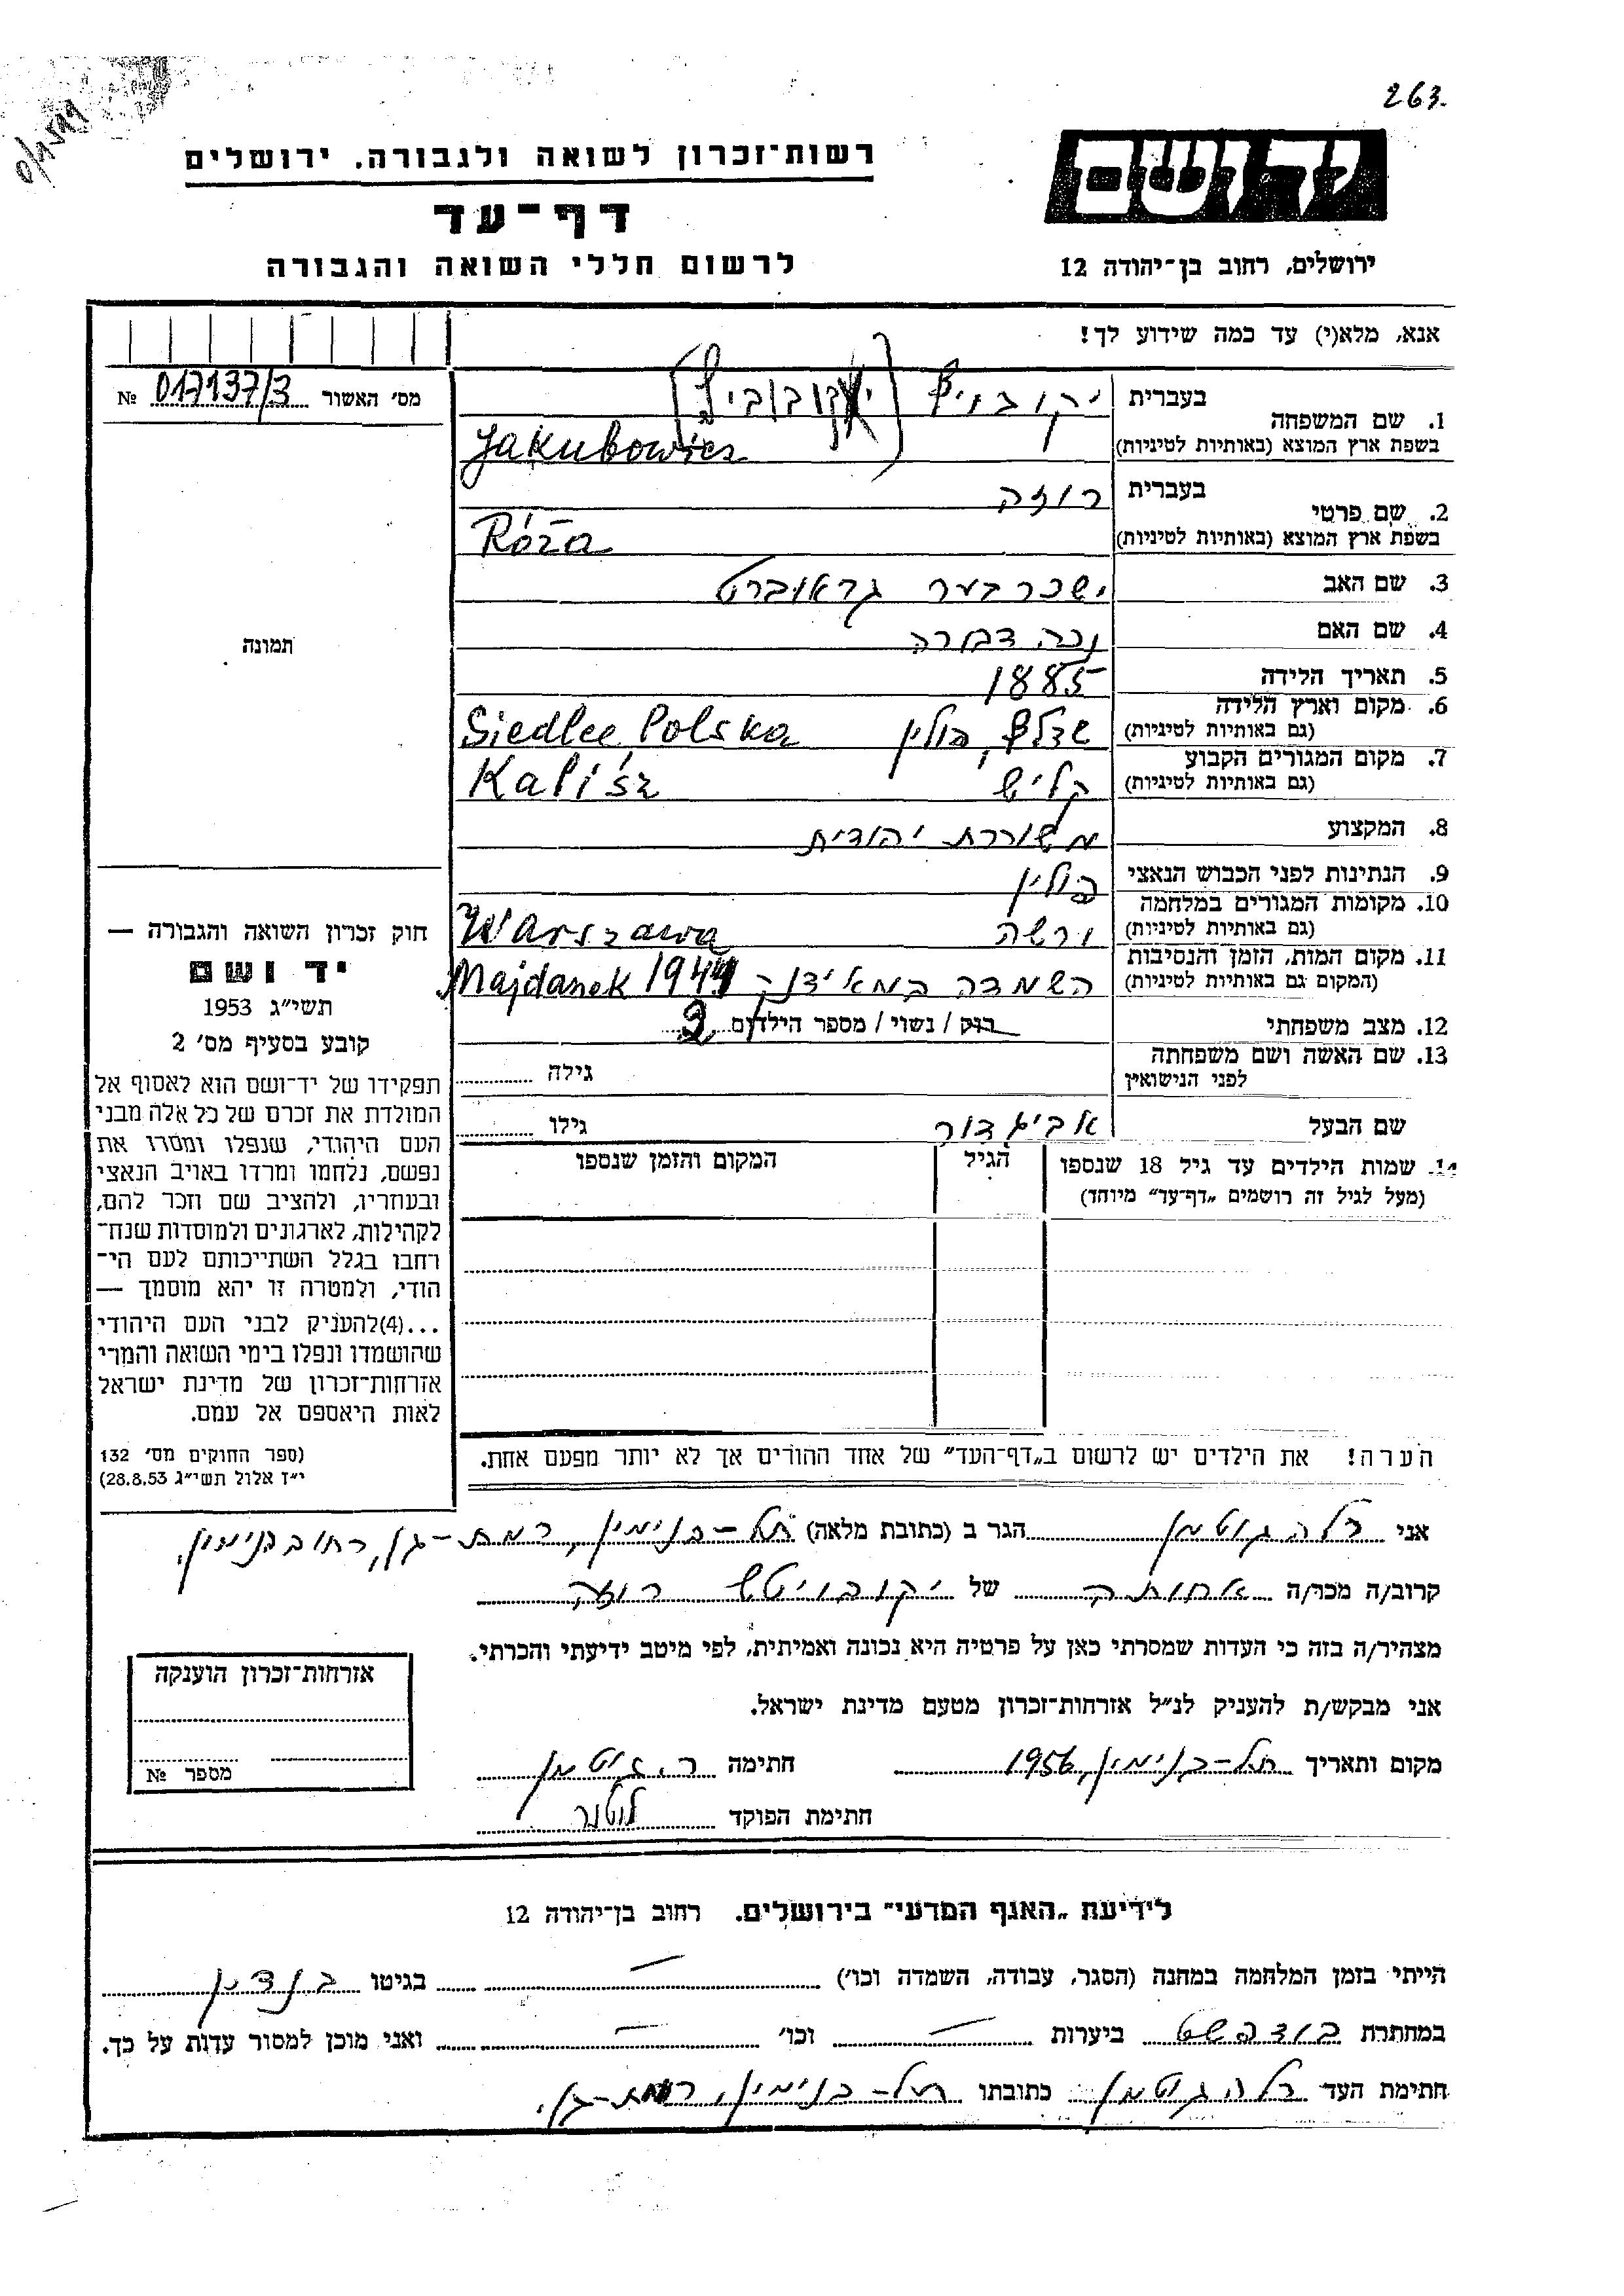 263.
רשות־זכרון לשואה ולגבורה. ירושלים
יד ושם
דף־עד
לרשום חללי השואה והגבורה
ירושלים, רחוב בן־יהודה 12
אנא, מלא(י) עד כמה שידוע לך!
מס׳ האשור 017137/3 №
תמונה
1. שם המשפחה
בעברית יקובויץ (יעקובוביץ)
בשפת ארץ המוצא (באותיות לטיניות) Jakubowicz
2. שם פרטי
בעברית רוזה
בשפת ארץ המוצא (באותיות לטיניות) Róża
3. שם האב ישכר בער גראוברט
4. שם האם נכה דבורה
5. תאריך הלידה 1885
6. מקום וארץ הלידה
(גם באותיות לטיניות) שדלץ, פולין Siedlce Polska
7. מקום המגורים הקבוע
(גם באותיות לטיניות) קליש Kalisz
8. המקצוע משוררת יהודית
9. הנתינות לפני הכבוש הנאצי פולין
10. מקומות המגורים במלחמה
(גם באותיות לטיניות) ורשה Warszawa
11. מקום המות, הזמן והנסיבות
(המקום גם באותיות לטיניות) השמדה במאידנק Majdanek 1944
12. מצב משפחתי רוק / נשוי / מספר הילדים
13. שם האשה ושם משפחתה
לפני הנישואין גילה
שם הבעל אביגדור גילו
14. שמות הילדים עד גיל 18 שנספו
(מעל לגיל זה רושמים „דף־עד״ מיוחד)
הגיל
המקום והזמן שנספו
חוק זכרון השואה והגבורה —
יד ושם
תשי״ג 1953
קובע בסעיף מס׳ 2
תפקידו של יד־ושם הוא לאסוף אל
המולדת את זכרם של כל אלה מבני
העם היהודי, שנפלו ומסרו את
נפשם, נלחמו ומרדו באויב הנאצי
ובעוזריו, ולהציב שם וזכר להם,
לקהילות, לארגונים ולמוסדות שנח־
רחבו בגלל השתייכותם לעם הי־
הודי, ולמטרה זו יהא מוסמך —
...(4)להעניק לבני העם היהודי
שהושמדו ונפלו בימי השואה והמרי
אזרחות־זכרון של מדינת ישראל
לאות היאספם אל עמם.
(ספר החוקים מס׳ 132
י״ז אלול תשי״ג 28.8.53)
הערה! את הילדים יש לרשום ב„דף־העד״ של אחד ההורים אך לא יותר מפעם אחת.
אני רלה גוטמן הגר ב (כתובת מלאה) תל-בנימין, רמת-גן, רחוב בנימין.
קרוב/ה מכר/ה אחותה של יקובויטש רוזה
מצהיר/ה בזה כי העדות שמסרתי כאן על פרטיה היא נכונה ואמיתית, לפי מיטב ידיעתי והכרתי.
אני מבקש/ת להעניק לנ״ל אזרחות־זכרון מטעם מדינת ישראל.
מקום ותאריך תל-בנימין, 1956 חתימה ר. גוטמן
חתימת הפוקד
אזרחות־זכרון הוענקה
מספר №
לידיעת „האגף המדעי״ בירושלים. רחוב בן־יהודה 12
הייתי בזמן המלחמה במחנה (הסגר, עבודה, השמדה וכו׳) — בגיטו בנדין
במחתרת בודפשט ביערות — וכו׳ — ואני מוכן למסור עדות על כך.
חתימת העד רלה גוטמן כתובתו תל-בנימין, רמת-גן.